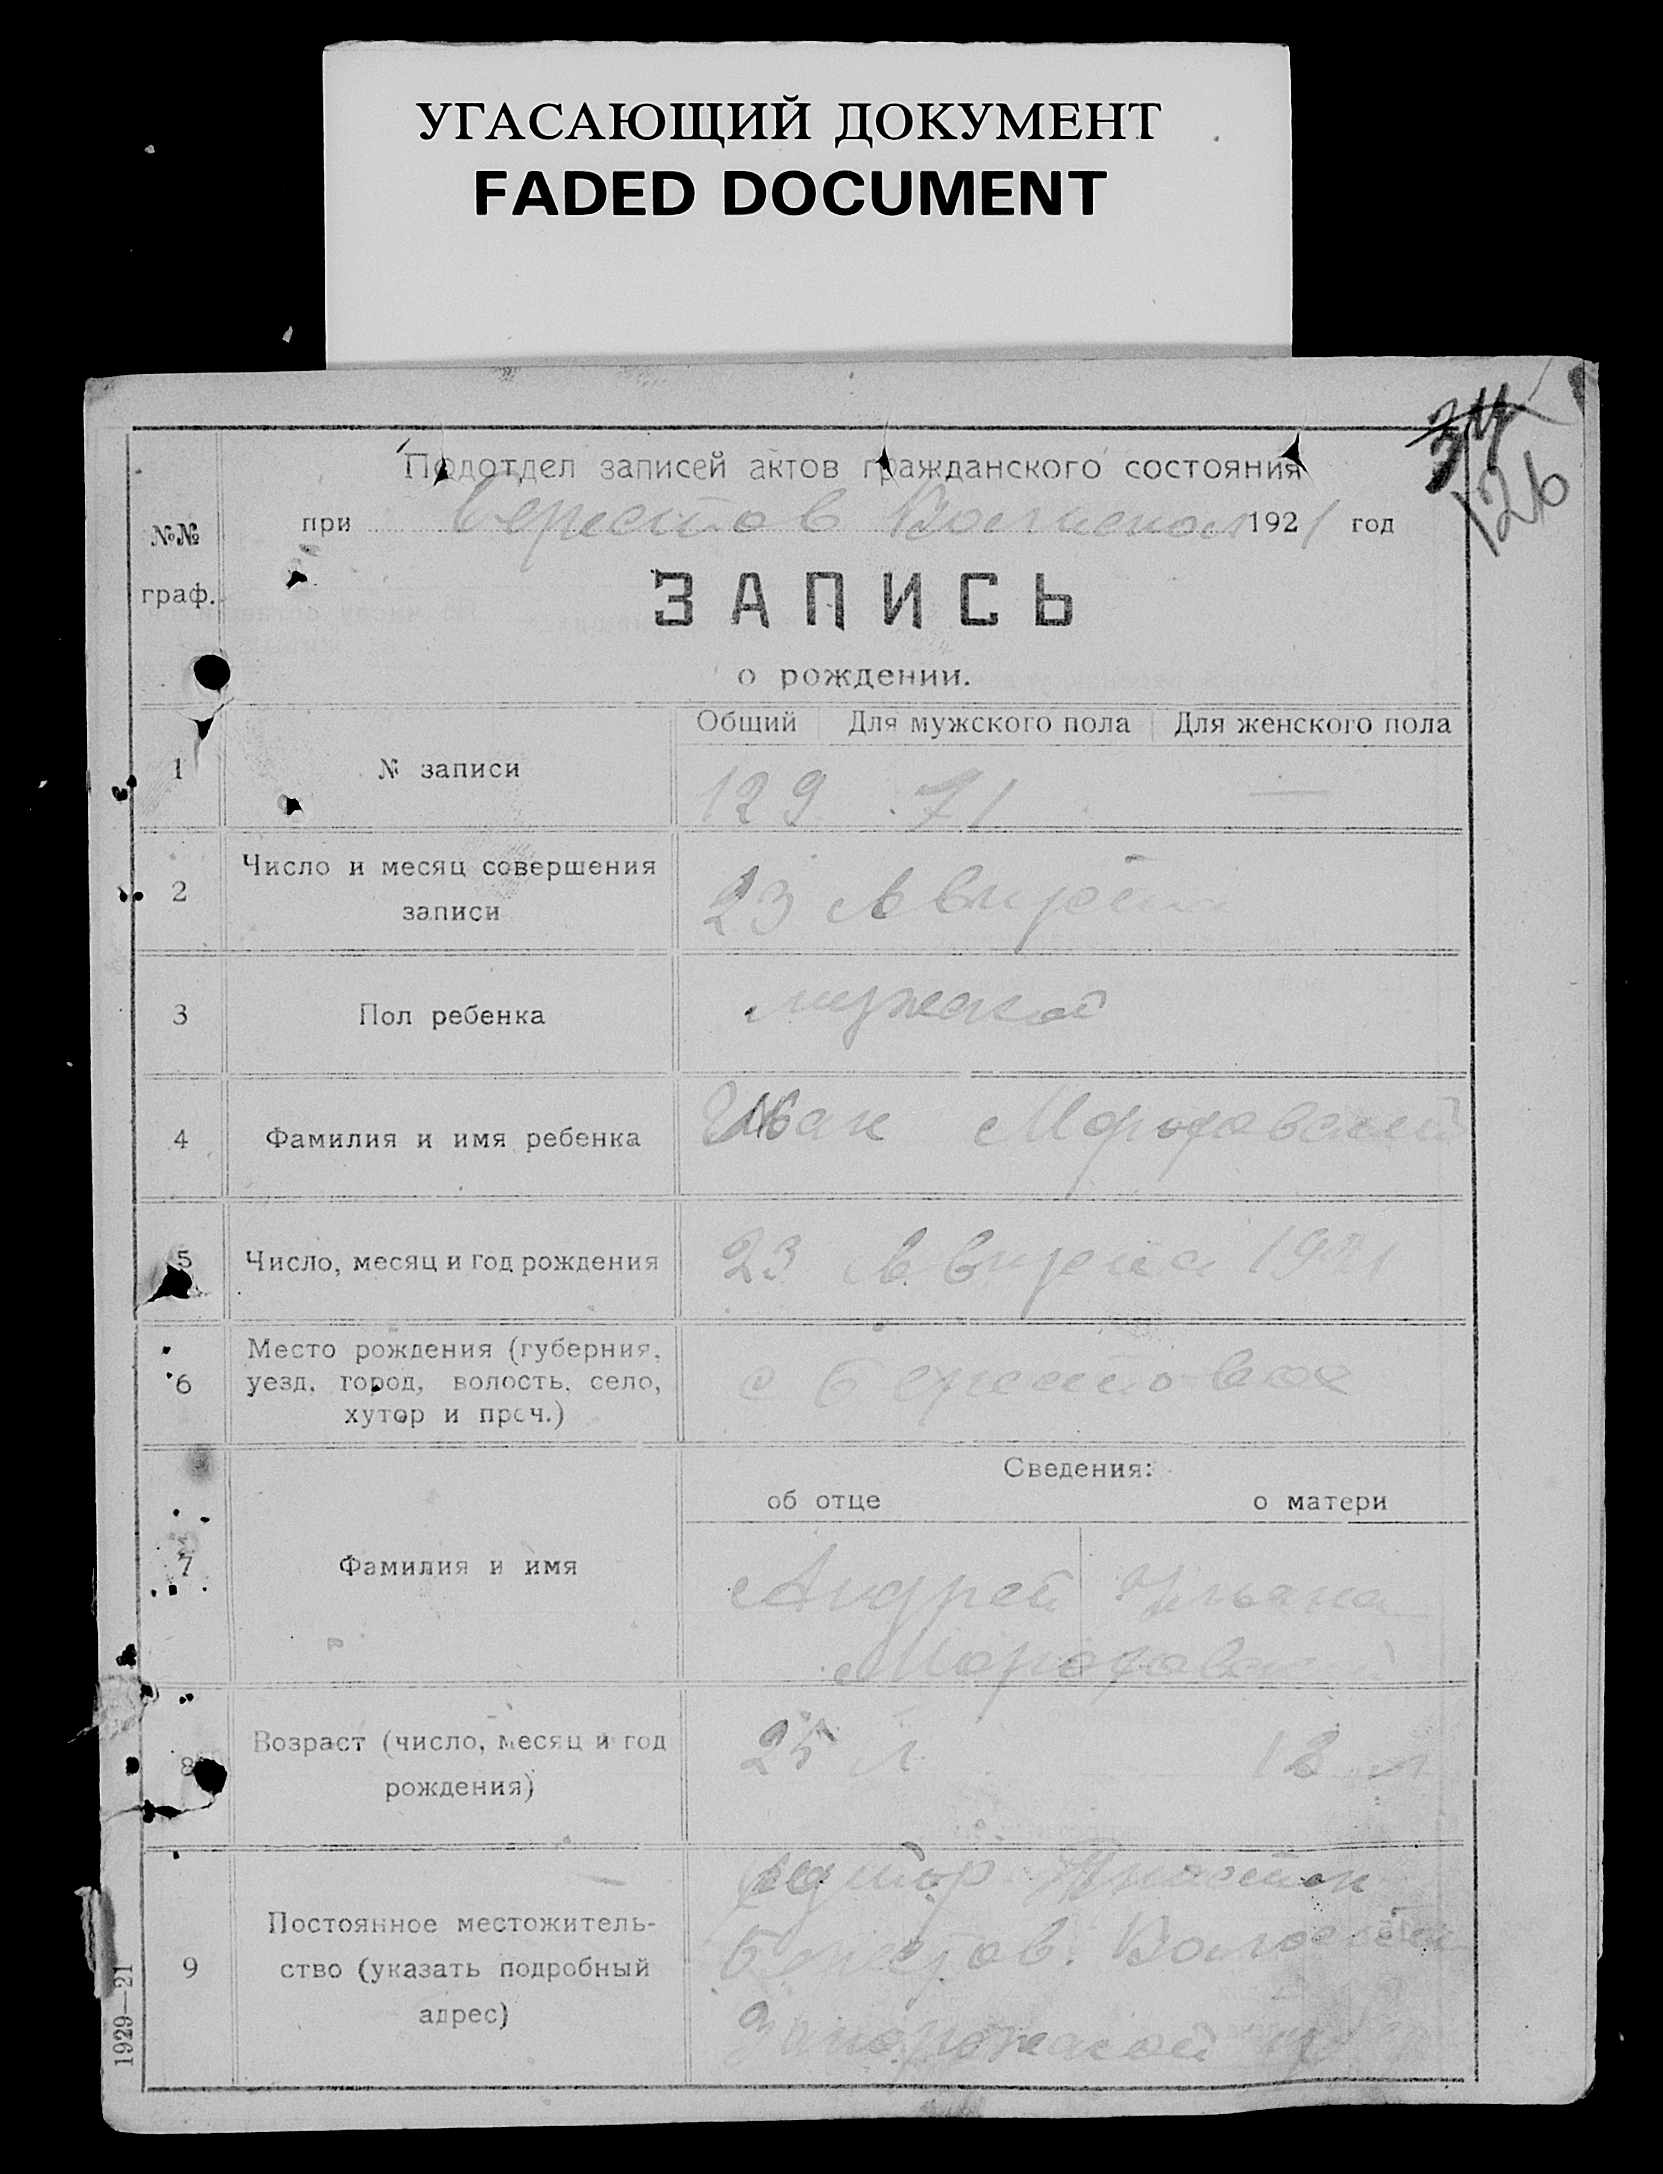 УГАСАЮЩИЙ ДОКУМЕНТ
FADED DOCUMENT
34
126
Подотдел записей актов гражданского состояния
при Берестов 1921 год
№№
граф.
ЗАПИСЬ
о рождении.
Общий Для мужского пола Для женского пола
1 № записи 129 71 —
2 Число и месяц совершения
записи
23 Августа
3 Пол ребенка мужской
4 Фамилия и имя ребенка Иван
5 Число, месяц и год рождения 23 Августа 1921
6 Место рождения (губерния,
уезд, город, волость, село,
хутор и проч.)
с Берестовое
Сведения:
об отце о матери
7 Фамилия и имя
Андрей Ульяна
8 Возраст (число, месяц и год
рождения)
25 л 18 л
9 Постоянное местожитель-
ство (указать подробный
адрес)
хутор
Берестов.
Запорожской
1929—21